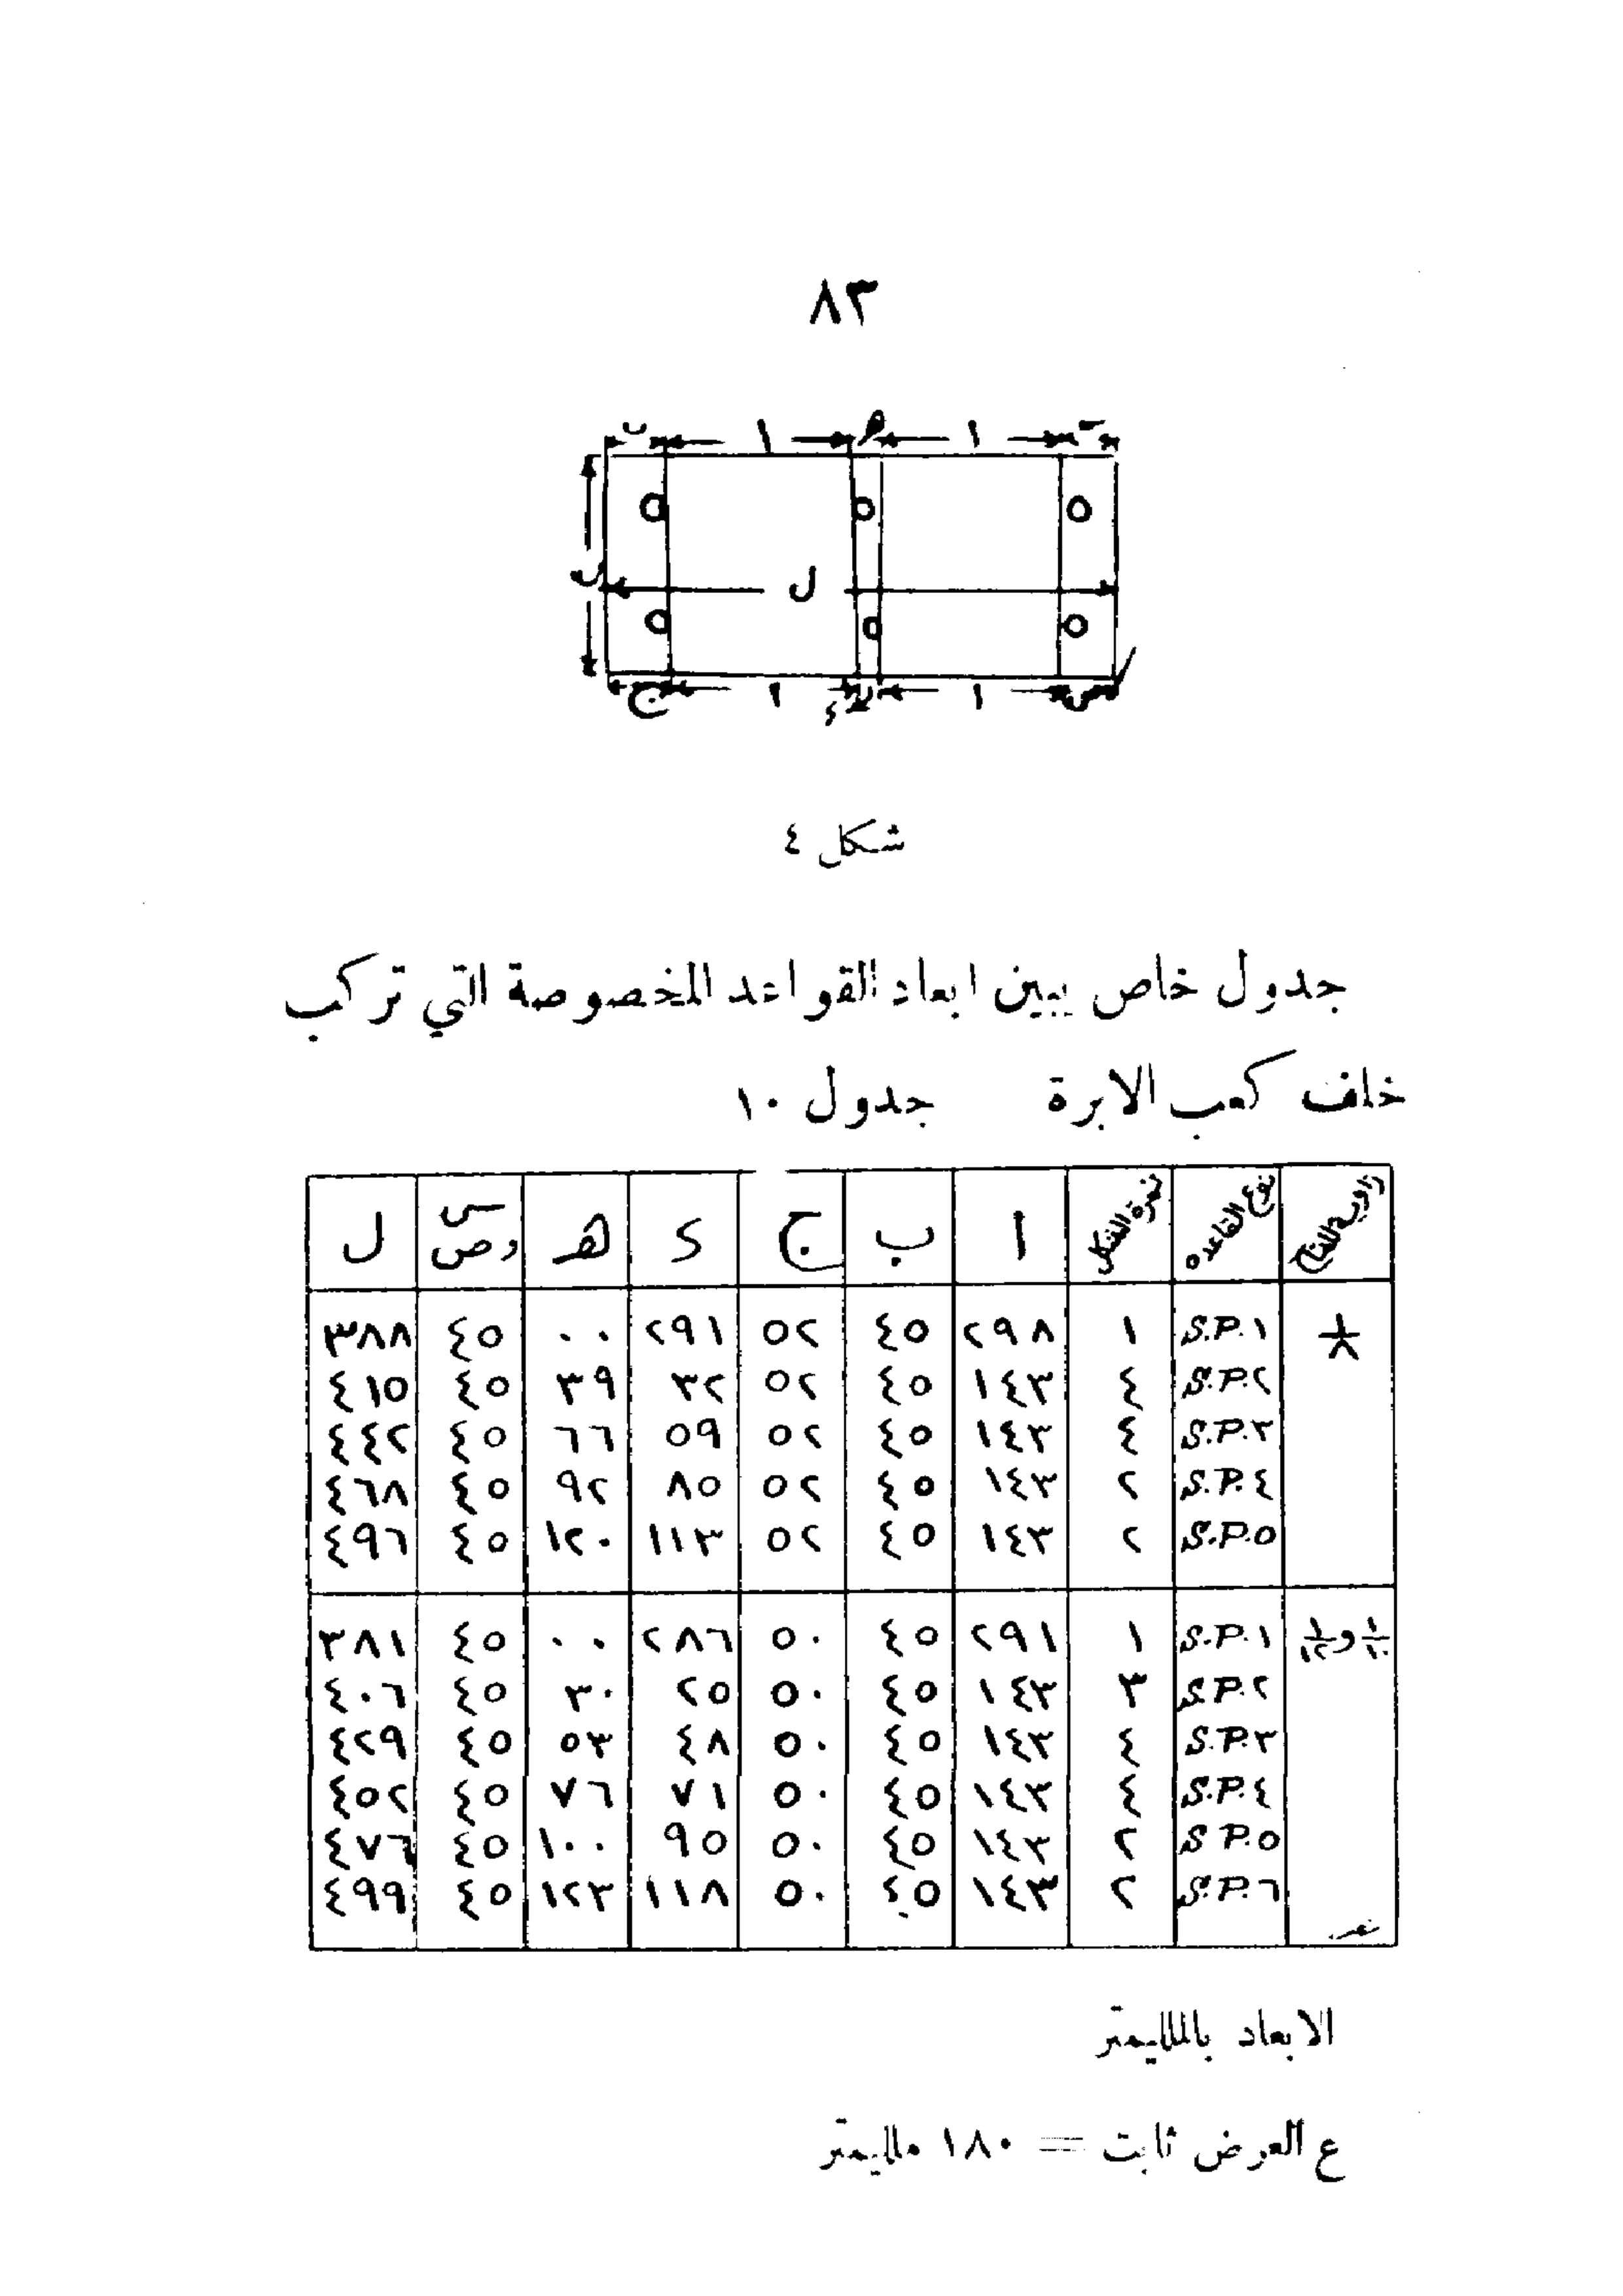 ٨٣
ب ا ه ا ب
ل
ج ١ ء ا س
شكل ٤
جدول خاص يبين ابعاد القواعد المخصوصة التي تركب
خلف كعب الابرة جدول ١٠
زاوية التفاح نوع القاعده نمرة الشكل ا ب ج د هـ س وص ل
١/٨ S.P.١ ١ ٢٩٨ ٤٥ ٥٢ ٢٩١ ٠٠ ٤٥ ٣٨٨
S.P.٢ ٤ ١٤٣ ٤٥ ٥٢ ٣٢ ٣٩ ٤٥ ٤١٥
S.P.٣ ٤ ١٤٣ ٤٥ ٥٢ ٥٩ ٦٦ ٤٥ ٤٤٢
S.P.٤ ٢ ١٤٣ ٤٥ ٥٢ ٨٥ ٩٢ ٤٥ ٤٦٨
S.P.٥ ٢ ١٤٣ ٤٥ ٥٢ ١١٣ ١٢٠ ٤٥ ٤٩٦
١/١٠ و ١/١٢ S.P.١ ١ ٢٩١ ٤٥ ٥٠ ٢٨٦ ٠٠ ٤٥ ٣٨١
S.P.٢ ٣ ١٤٣ ٤٥ ٥٠ ٢٥ ٣٠ ٤٥ ٤٠٦
S.P.٣ ٤ ١٤٣ ٤٥ ٥٠ ٤٨ ٥٣ ٤٥ ٤٢٩
S.P.٤ ٤ ١٤٣ ٤٥ ٥٠ ٧١ ٧٦ ٤٥ ٤٥٢
S.P.٥ ٢ ١٤٣ ٤٥ ٥٠ ٩٥ ١٠٠ ٤٥ ٤٧٦
S.P.٦ ٢ ١٤٣ ٤٥ ٥٠ ١١٨ ١٢٣ ٤٥ ٤٩٩
الابعاد بالملليمتر
ع العرض ثابت = ١٨٠ ملليمتر